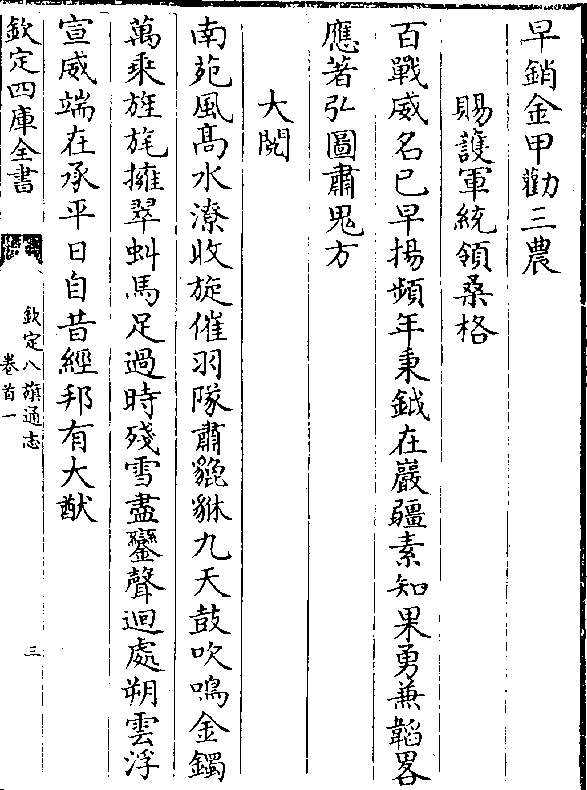 早銷金甲勸三農
賜護軍統領桑格
百戰威名已早揚頻年秉鉞在巖疆素知果勇兼韜畧
應著弘圖肅鬼方
大閱
南苑風髙水潦收旋催羽隊肅貔貅九天鼓吹鳴金鐲
萬乘旌旄擁翠虯馬足過時殘雪盡鑾聲迴處朔雲浮
宣威端在承平日自昔經邦有大猷
欽定四庫全書
欽定八旗通志
卷首一
三